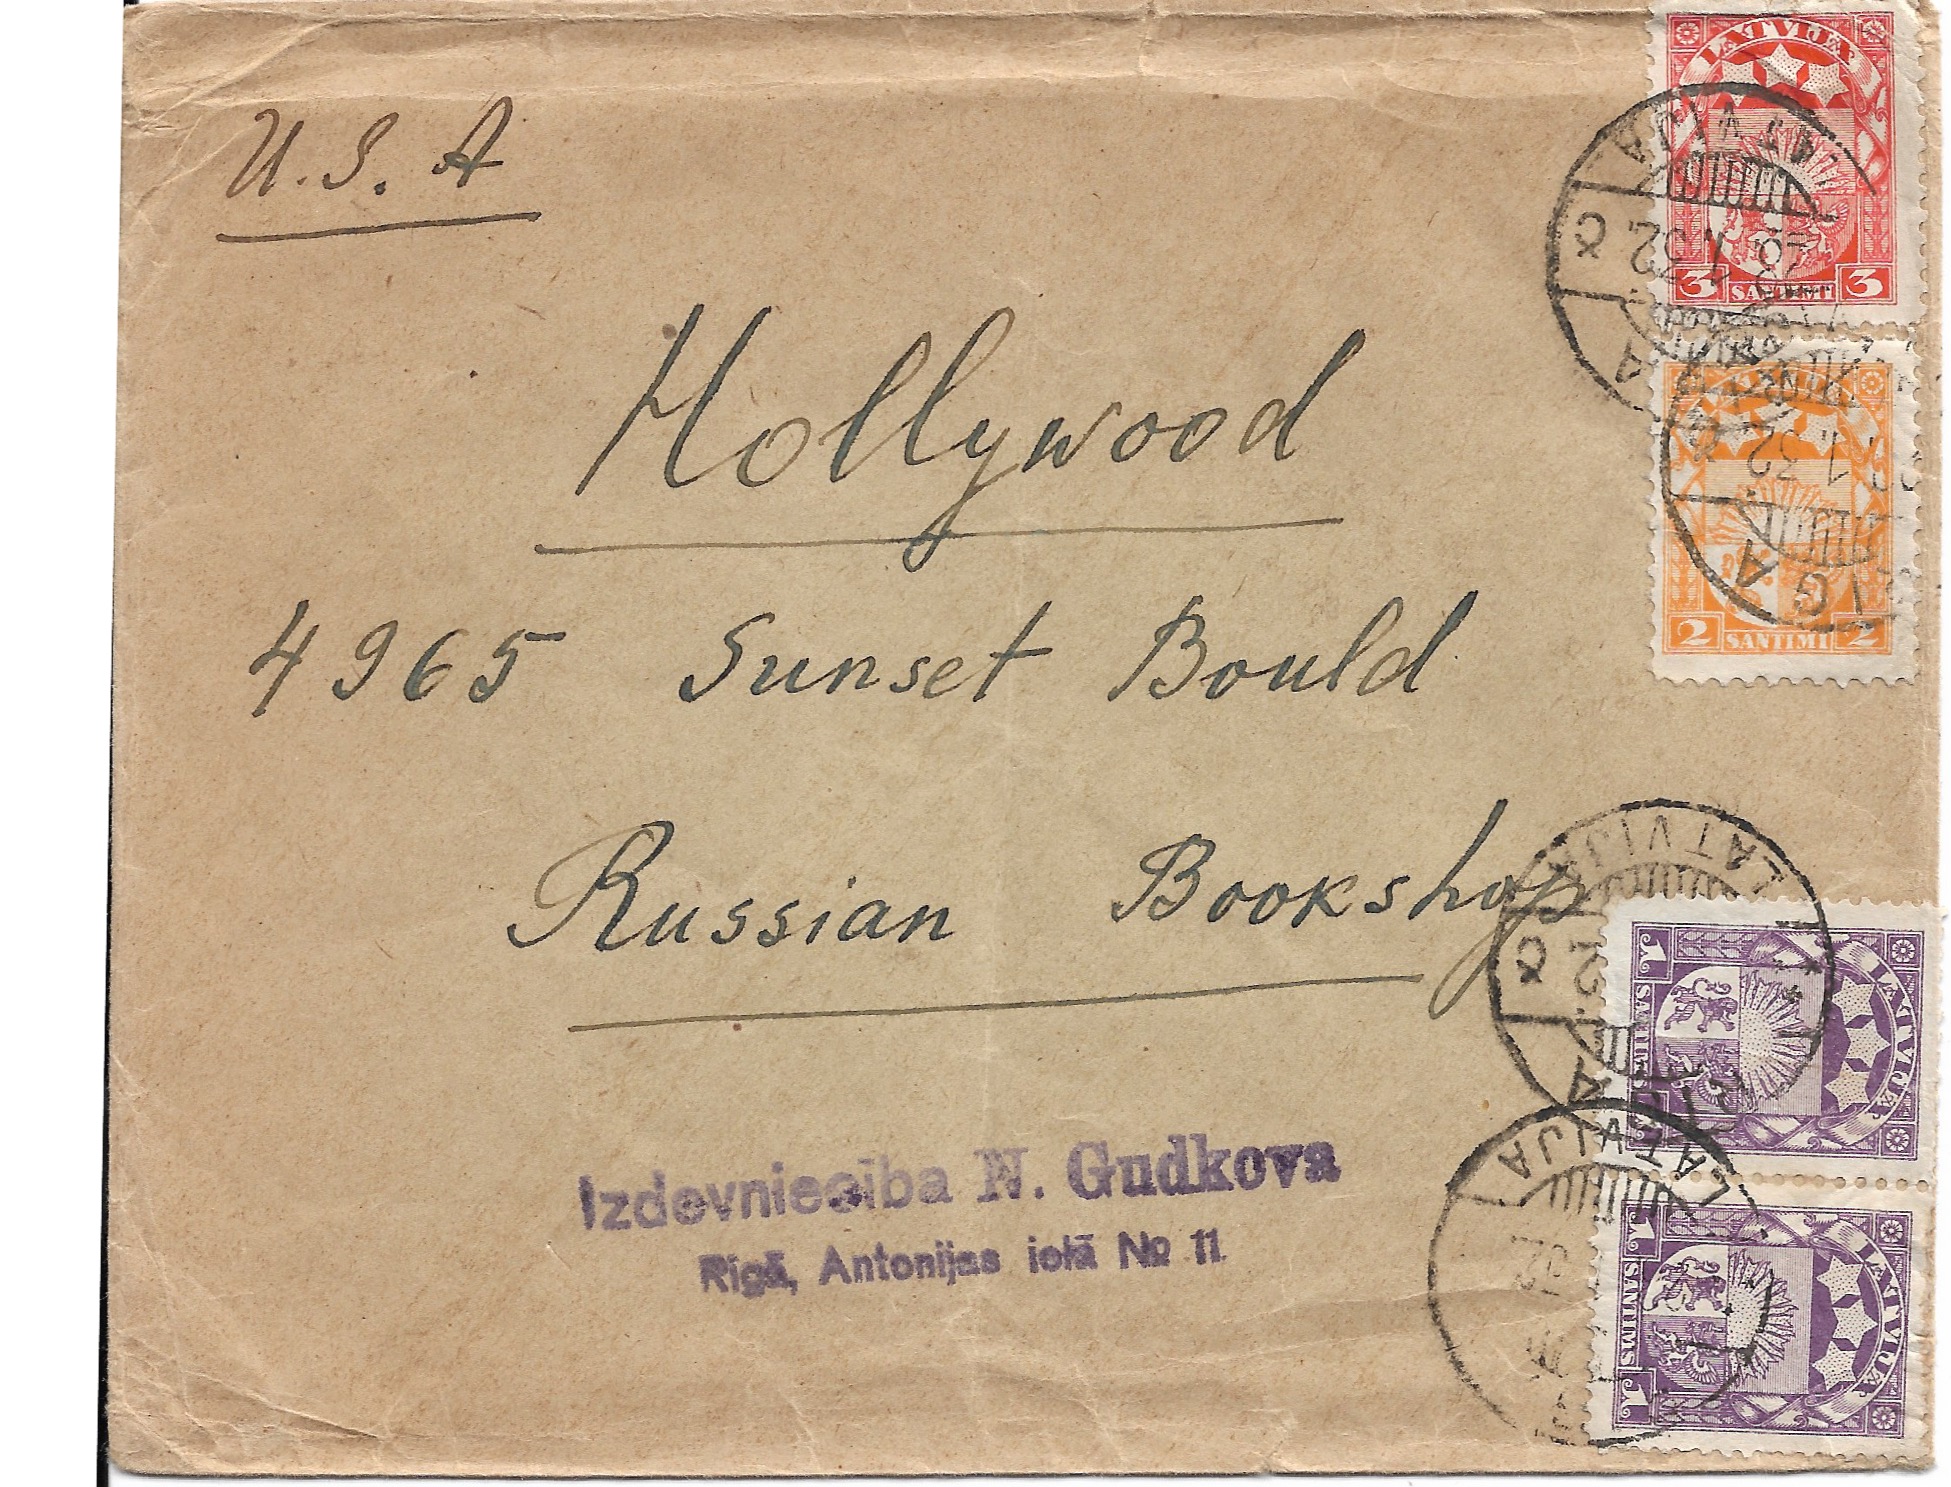 U. S. A
Hollywood
4965 Sunset Bould
Russian Bookshop
Izdevniecība N. Gudkova
Rīgā, Antonijas ielā № 11
LATVIJA
3 SANTIMI 3
LATVIJA
2 SANTIMI 2
LATVIJA
1 SANTIMS 1
LATVIJA
1 SANTIMS 1
LATVIJA
1.32
RIGA
1.32
LATVIJA
LATVIJA